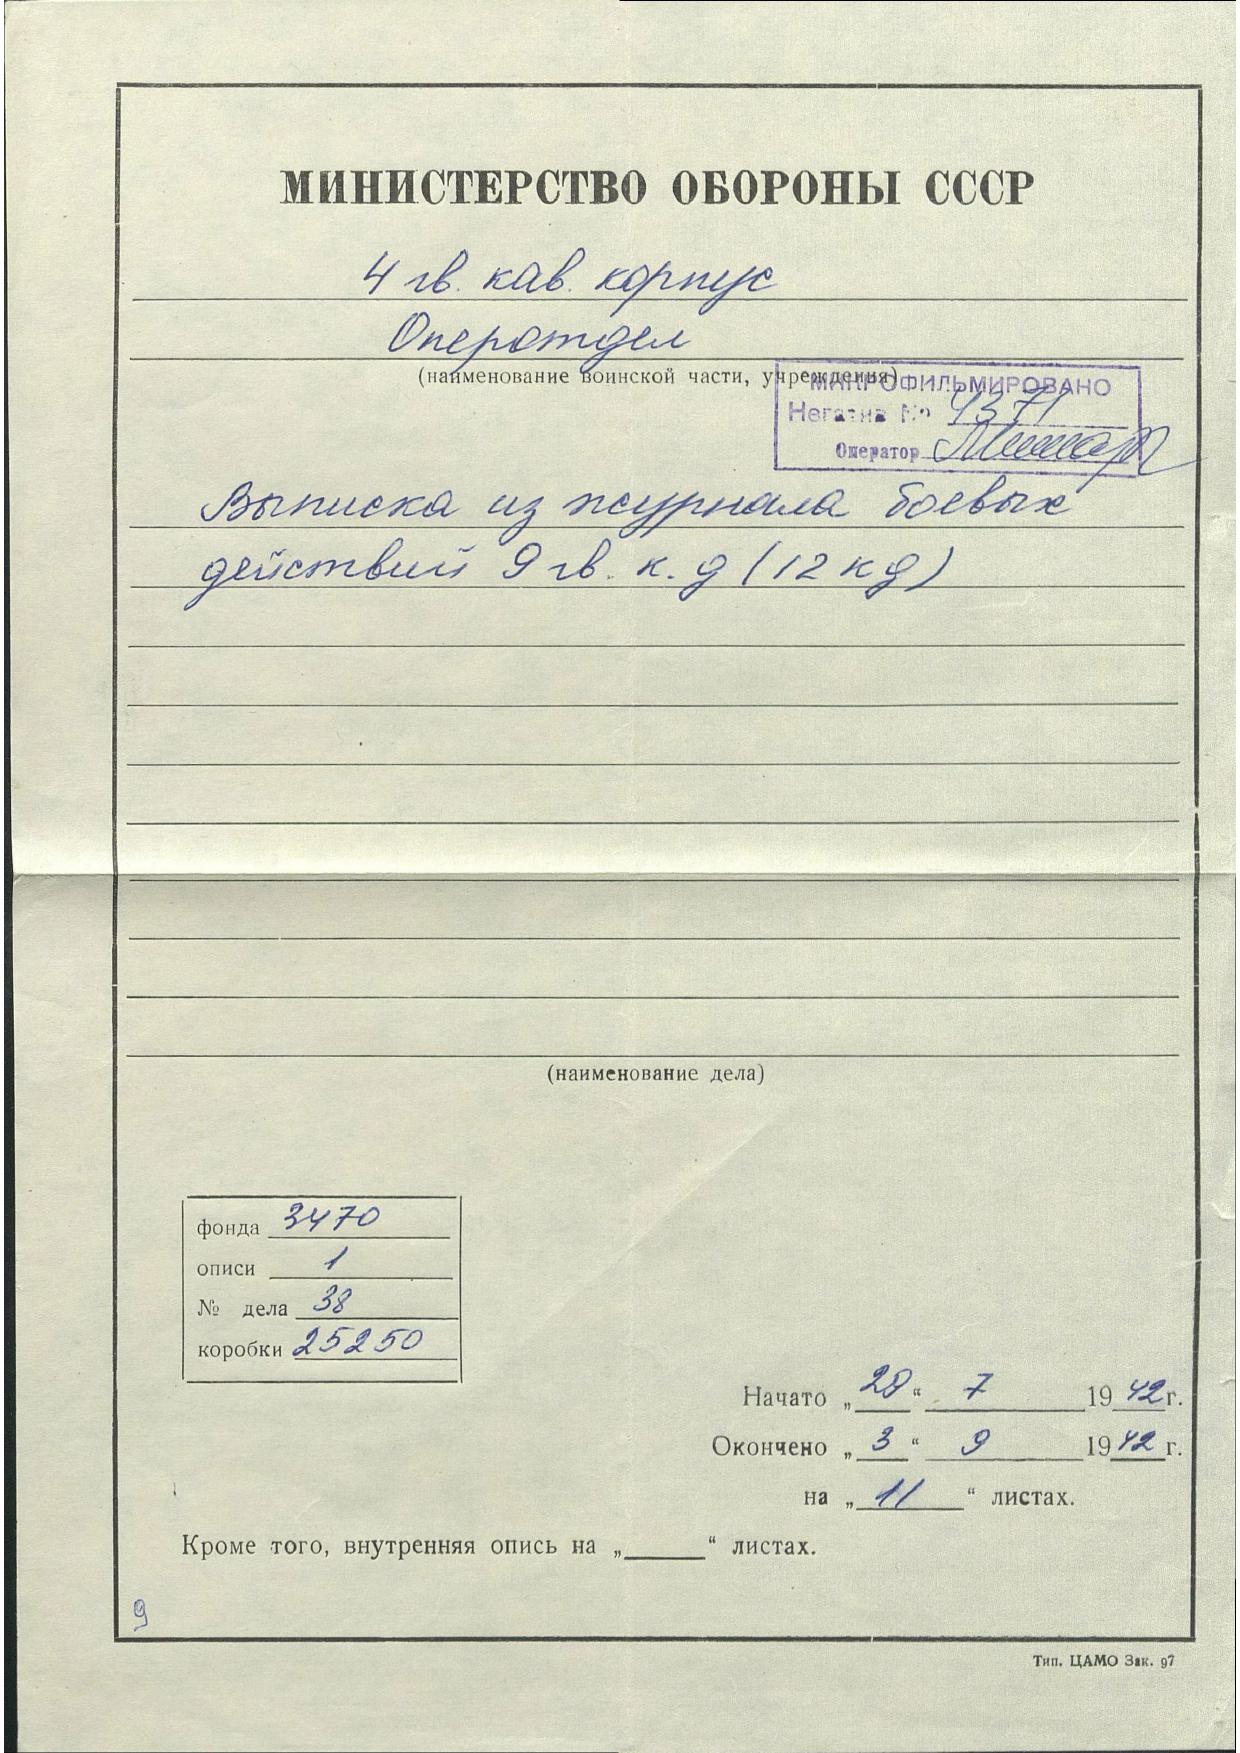 МИНИСТЕРСТВО ОБОРОНЫ СССР
4 гв. кав. корпус
Оперотдел
(наименование воинской части, учреждения)
МИКРОФИЛЬМИРОВАНО
Негатив № 4371
Оператор
Выписка из журнала боевых
действий 9 гв. к. д (12 кд)
(наименование дела)
фонда 3470
описи 1
№ дела 38
коробки 25250
Начато „28“ 7 1942 г.
Окончено „3“ 9 1942 г.
на „11“ листах.
Кроме того, внутренняя опись на „______“ листах.
9
Тип. ЦАМО Зак. 97